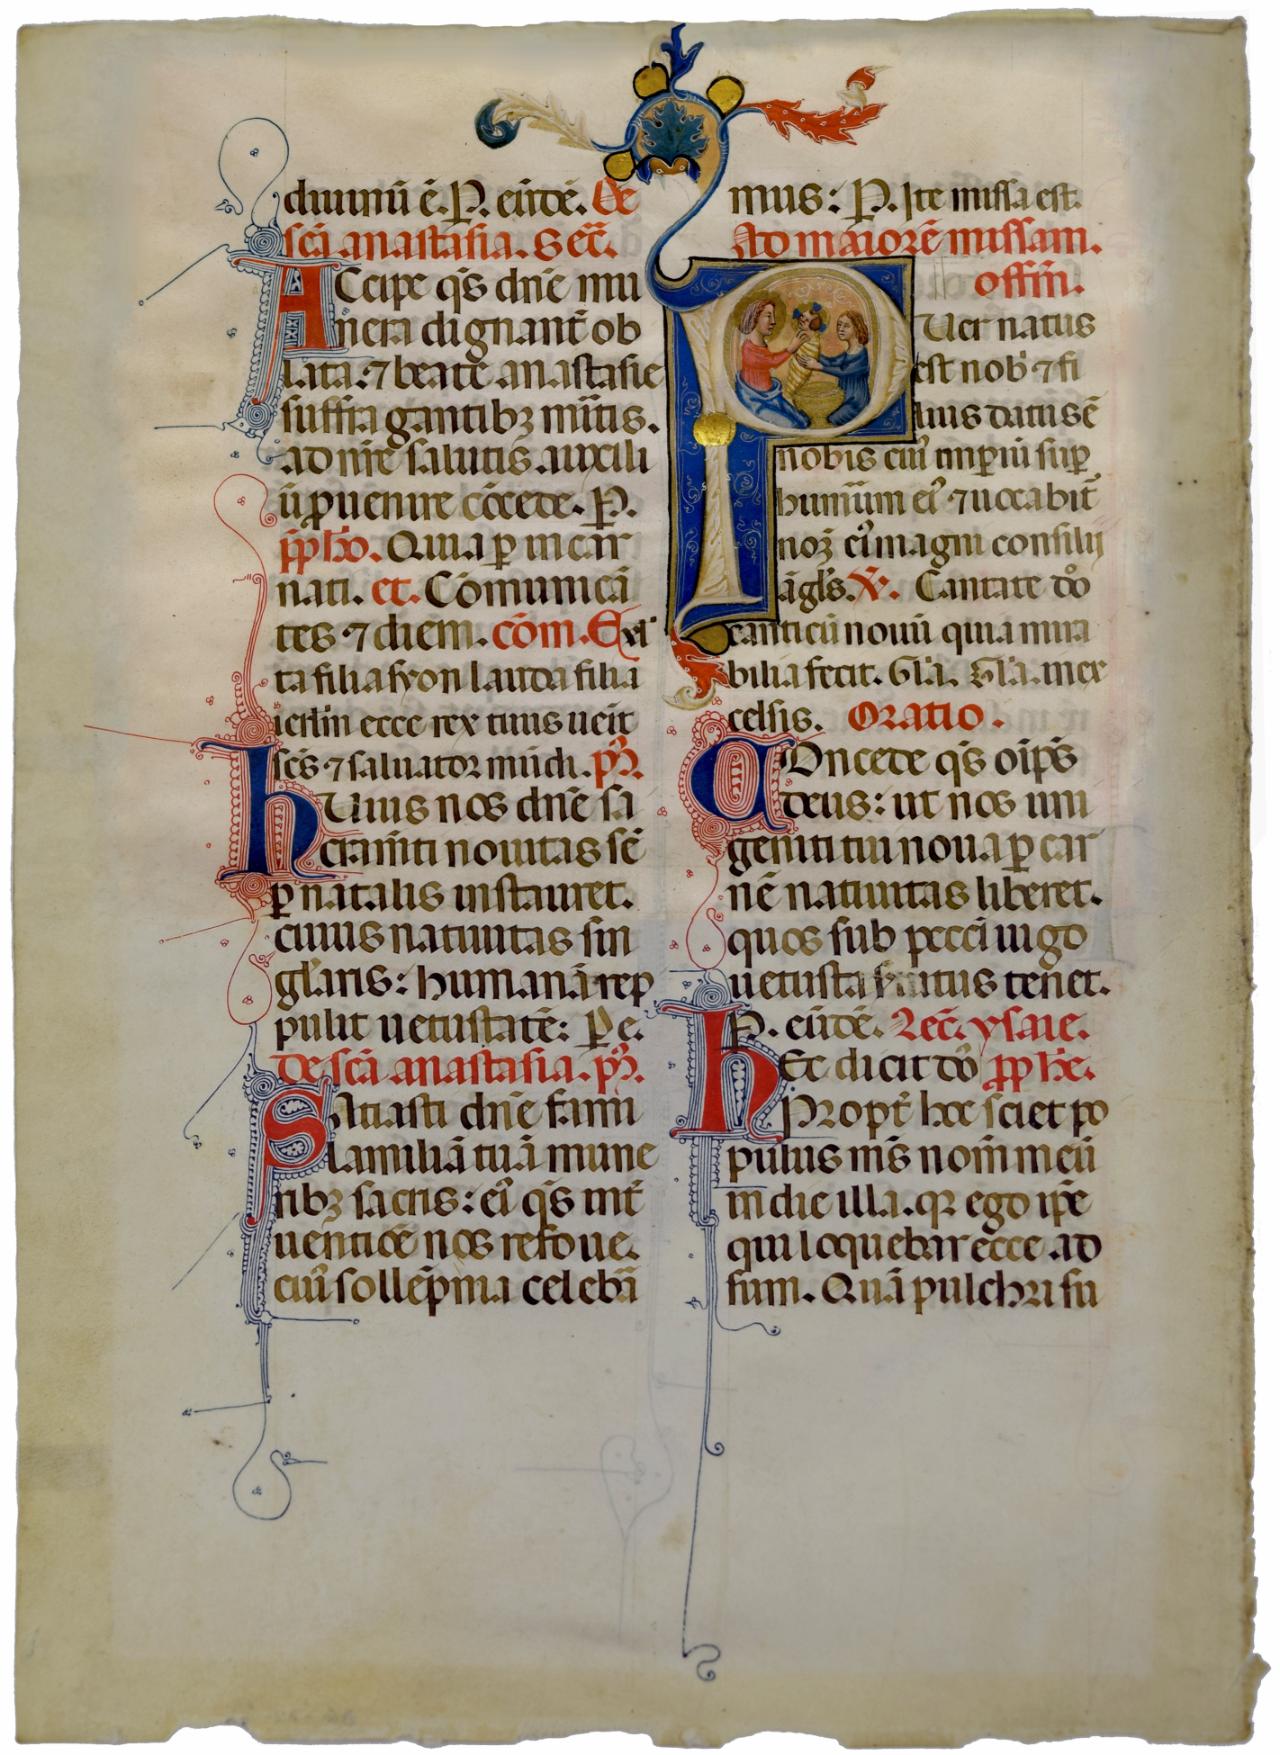 diuinū ē. P. eūdē. De
scā anastasia. Secr̄.
ACcipe qs̄ dnē mu
nera dignant̄ ob
lata. ⁊ beate anastasie
suffragantibꝫ mītis.
ad nr̄e salutis auxili
ū ꝓuenire cōcede. P.
Quia ꝑ incar
nati. et. Cōmunicā
tes ⁊ diem. cōm. Exl
ta filia syon lauda filia
ierlm̄ ecce rex tuus ueīt
scs̄ ⁊ saluator mūdi. p̄
hUius nos dnē sa
cramīti nouitas sē
ꝑ natalis instauret.
cuius natiuitas sin
glāris: humanā rep
pulit uetustatē: Pe.
de scā anastasia. p̄
SAtiasti dnē fami
l familiā tuā mune
ribꝫ sacris: eī qs̄ int̄
uentiōe nos refoue.
cuī sollēpnia celebrā
mus: P. Ite missa est.
Ad maiorē missam.
offm̄.
PUer natus
est nob̄ ⁊ fi
lius datus ē
nobis cuī inꝑiū suꝑ
humūm eī ⁊ uocabit̄
nom̄ eī magni consilij
āgls̄. V. Cantate dō
canticū nouū quia mira
bilia fecit. Glā. Glā. in ex
celsis. Oratio.
COncede qs̄ oīps̄
deus: ut nos uni
geniti tui noua ꝑ car
nē natiuitas liberet.
quos sub peccī iugo
uetusta seruitus tenet.
P. eūdē. Lec̄. ysaie.
hEc dicit dō pphē.
Propt̄ hoc sciet po
pulus ms̄ nom̄ meū
in die illa. qr ego ipē
qui loquebar ecce ad
sum. Quā pulchri su